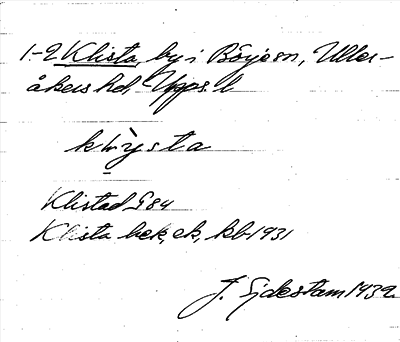 1-2 Klista, by i Börje sn, Uller-
åkers hd Upps. l
klysta
Klistad G84
Klista hek, ek, kb 1931
J. Sjdestam 1932